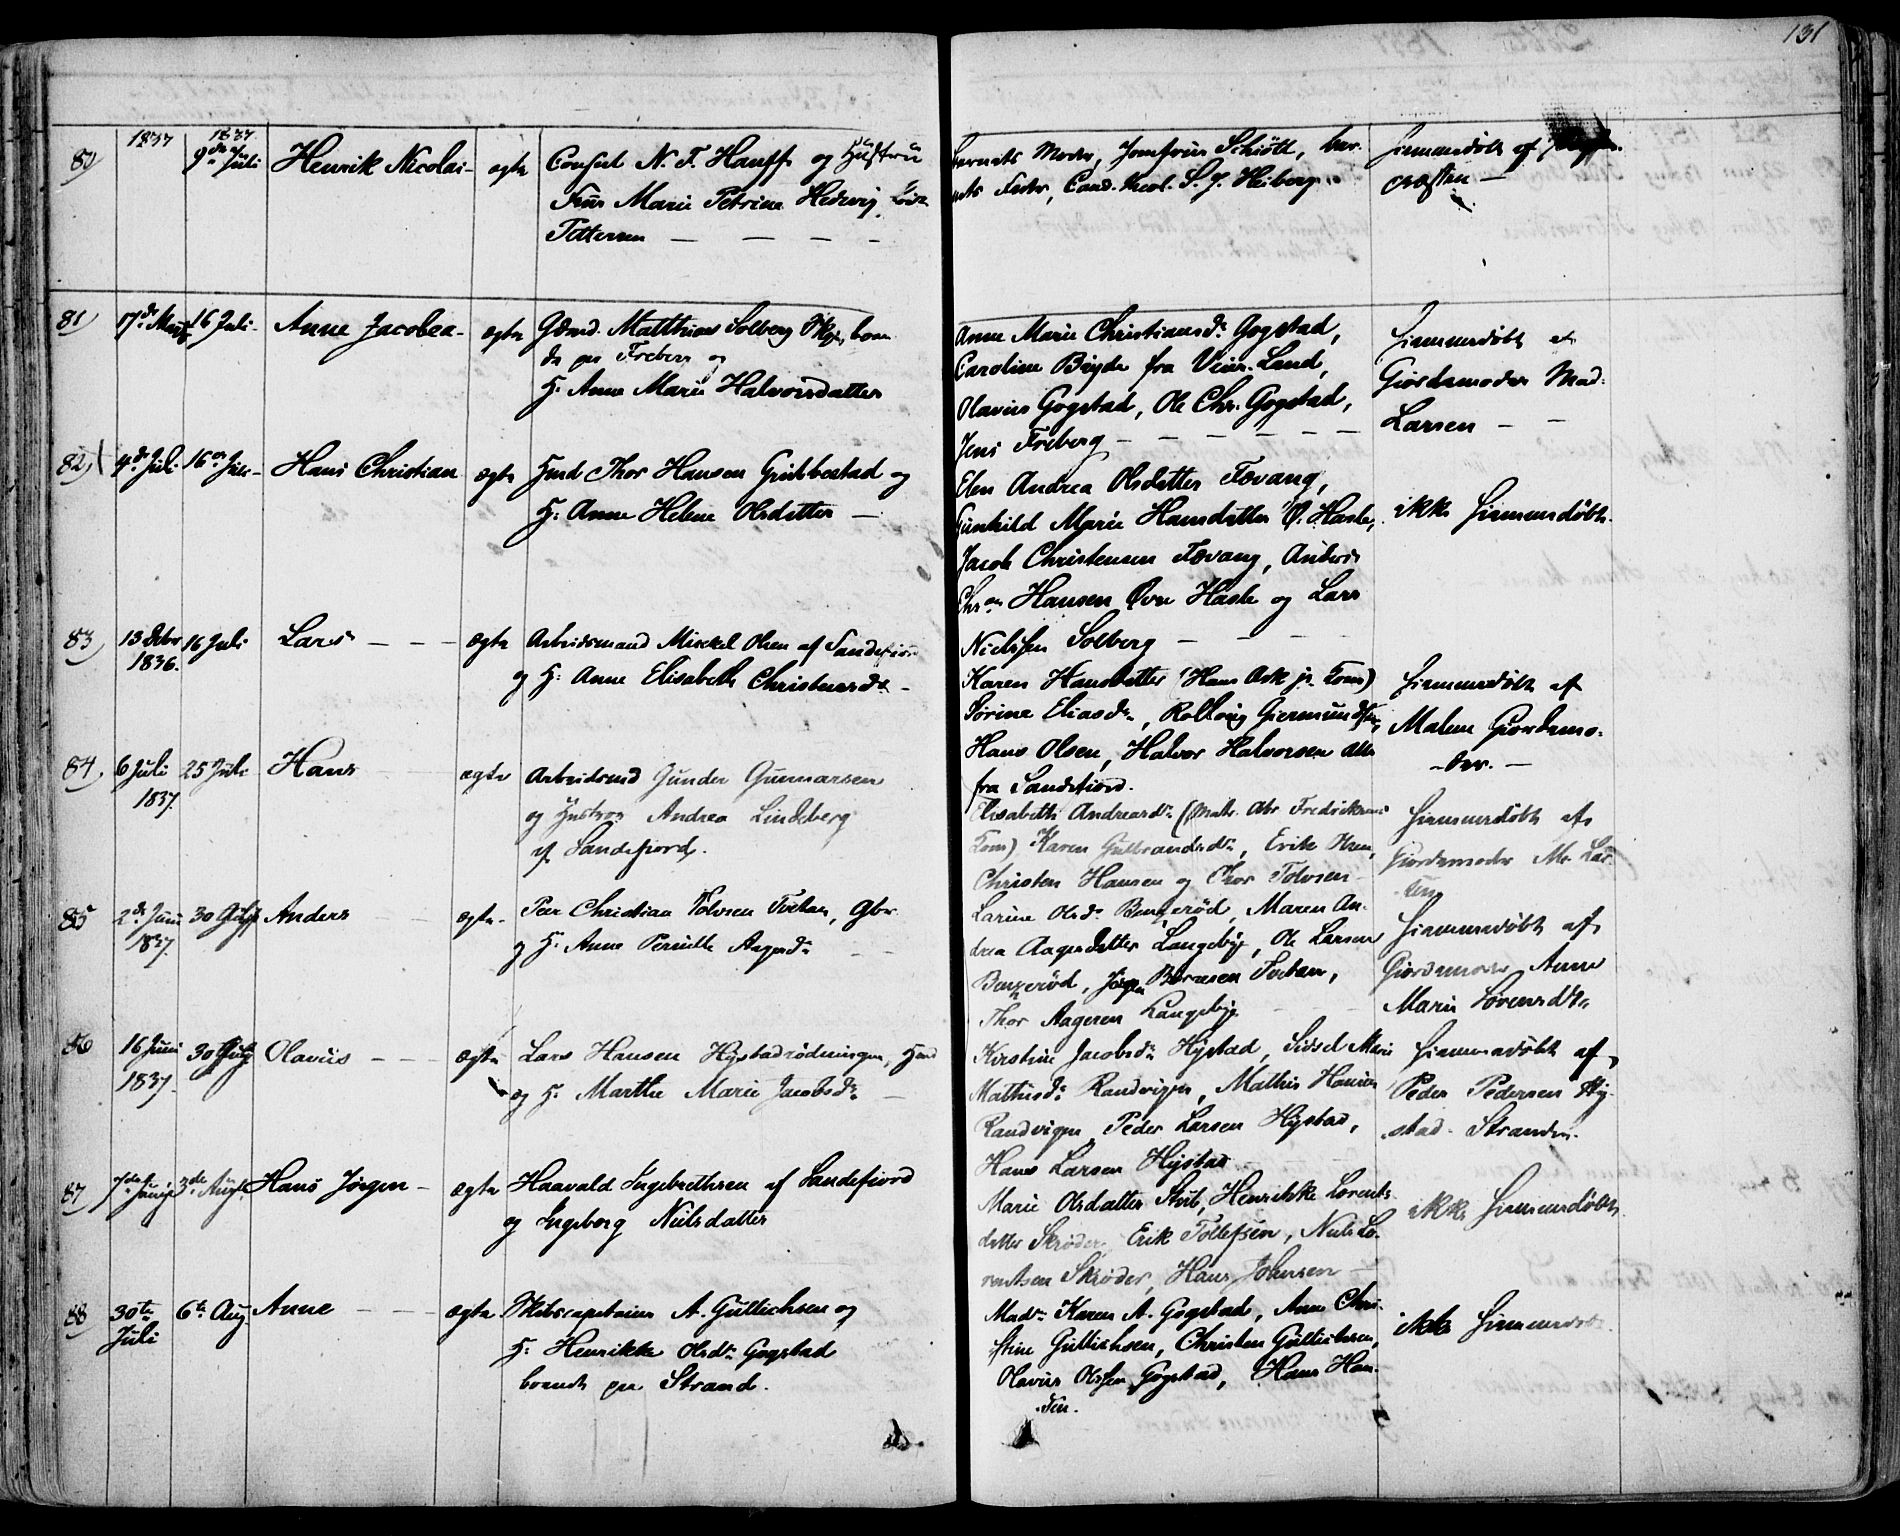 131
80) 1837 1837. 9de Juli Henrik Nicolai - ægte Consul N. F. Hauff og Hustru
Frue Marie Petrine Hedevig
Pettersen — — — —
Barnets Moder, Jomfrue Schiøtt, bar-
nets Fader, Cand. theol. S. J. Heiberg.
hjemmedøbt af
præsten —
81) 17de 16 Juli - Anne Jacobea - ægte Gdmd. Matthias Solberg
de paa Freberg og
H: Anne Marie Halvorsdatter
Anne Marie Christiansdr Gogstad,
Caroline Bryde fra Land,
Olavus Gogstad, Ole Chr. Gogstad,
Jens Freberg — — — — —
hjemmedøbt af
Giordemoder Mad:
Larsen — —
82) 4de Juli 16de Juli - Hans Christian ægte Hmd Thor Hansen Gribbestad og
H: Anne Helene Olsdatter —
Elen Andrea Olsdatter Fevang,
Gunhild Marie Hansdatter Ø. Hasle,
Jacob Christensen Fevang, Anders
Chran Hansen Øvre Hasle og Lars
Nielssen Solberg — — — —
ikke hjemmedøbt.
83) 13 Octbr 1836. 16 Juli Lars — — — ægte Arbeidsmand Mickel Olsen af Sandefiord
og H: Anne Elisabeth Christensdr -
Karen Hansdatter (Hans Ask jr. Kone)
Sørine Eliasdr, Rolloug Giermundsen,
Hans Olsen, Halvor Halvorsen alle
fra Sandefiord.
hjemmedøbt af
Malene Giordemo-
- der. -
84) 6 Juli 1837. 25 Juli Hans ægte Arbeidsmd Gunder Gunnarsen
og Hustroe Andrea Lindeberg
af Sandefiord.
Elisabeth Andreasdr (Matr. Abr Fredriksens
Kone) Karen Gulbrandsdr, Erik
Christen Hansen og Thor Tolvsen
hjemmedøbt af
Giordemoder M. Lar-
sen
85 2de Juni 1837. 30 Juli Anders ægte Peer Christian Tolvsen Tveten, Gbr
og H: Anne Pernille Aagesdr — —
Larine Olsdr Bengerød, Maren An-
drea Aagesdatter Langeby, Ole Larsen
Bengerød, Jørgen Børresen Tveten,
Thor Aagesen Langeby — —
hjemmedøbt af
Giordemoder Anne
Marie Sørensdtr
86 16 Juni 1837. 30 Juli Olavus — — — ægte Lars Hansen Hystadrødningen, Hmd
og H: Marthe Marie Jacobsdr —
Kirstine Jacobsdr Hystad, Sidsel Marie
Mathisdr Randvigen, Mathis Hansen
Randvigen, Peder Larsen Hystad,
Hans Larsen Hystad —
hjemmedøbt af
Peder Pedersen Hy-
stad - Stranden.
87 7de 3de Hans Jørgen - ægte Haavald Ingebrethsen af Sandefiord
og Ingeborg Nielsdatter
Marie Olsdatter Skib, Henrikke Lorents-
datter Skrøder, Erik Tollefsen, Niels Lo-
rentsen Skrøder, Hans Johnsen —
ikke hjemmedøbt.
88 30te Juli 6te Aug. Anne — — — ægte Skibscapitaine A. Gullichsen og
H: Henrikke Olsdr Gogstad
boende paa Strand.
Madm Karen A. Gogstad, Anne Chri-
stine Gullichsen, Christen Gullichsen,
Olavus Olssen Gogstad, Hans Han-
sen.
ikke hjemmedøbt.